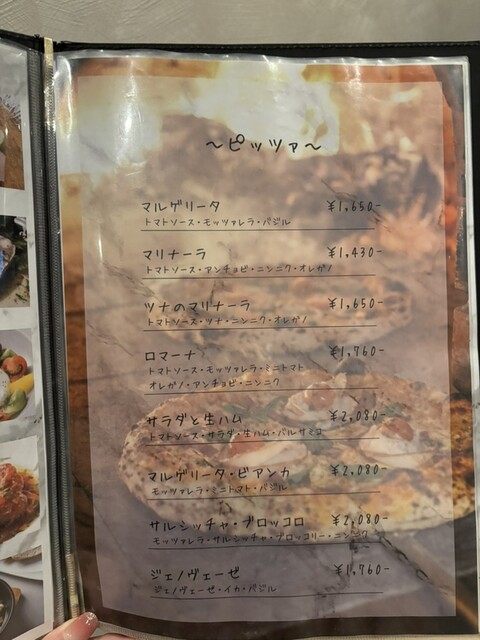 ～ピッツァ～
マルゲリータ ¥1,650-
トマトソース・モッツァレラ・バジル
マリナーラ ¥1,430-
トマトソース・アンチョビ・ニンニク・オレガノ
ツナのマリナーラ ¥1,650-
トマトソース・ツナ・ニンニク・オレガノ
ロマーナ ¥1,760-
トマトソース・モッツァレラ・ミニトマト
オレガノ・アンチョビ・ニンニク
サラダと生ハム ¥2,080-
トマトソース・サラダ・生ハム・バルサミコ
マルゲリータ・ビアンカ ¥2,080-
モッツァレラ・ミニトマト・バジル
サルシッチャ・ブロッコロ ¥2,080-
モッツァレラ・サルシッチャ・ブロッコリー・ニンニク
ジェノヴェーゼ ¥1,760-
ジェノヴェーゼ・イカ・バジル